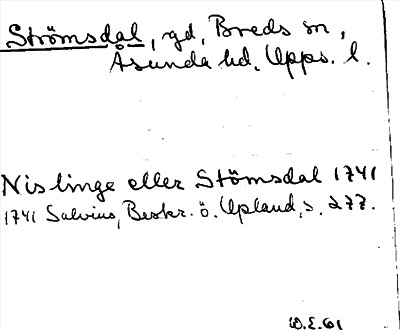 Strömsdal, gd, Breds sn,
Åsunda hd, Upps. l.
Nislinge eller Stömsdal 1741
1741 Salvius, Beskr. ö. Upland, s. 277.
W.E.61